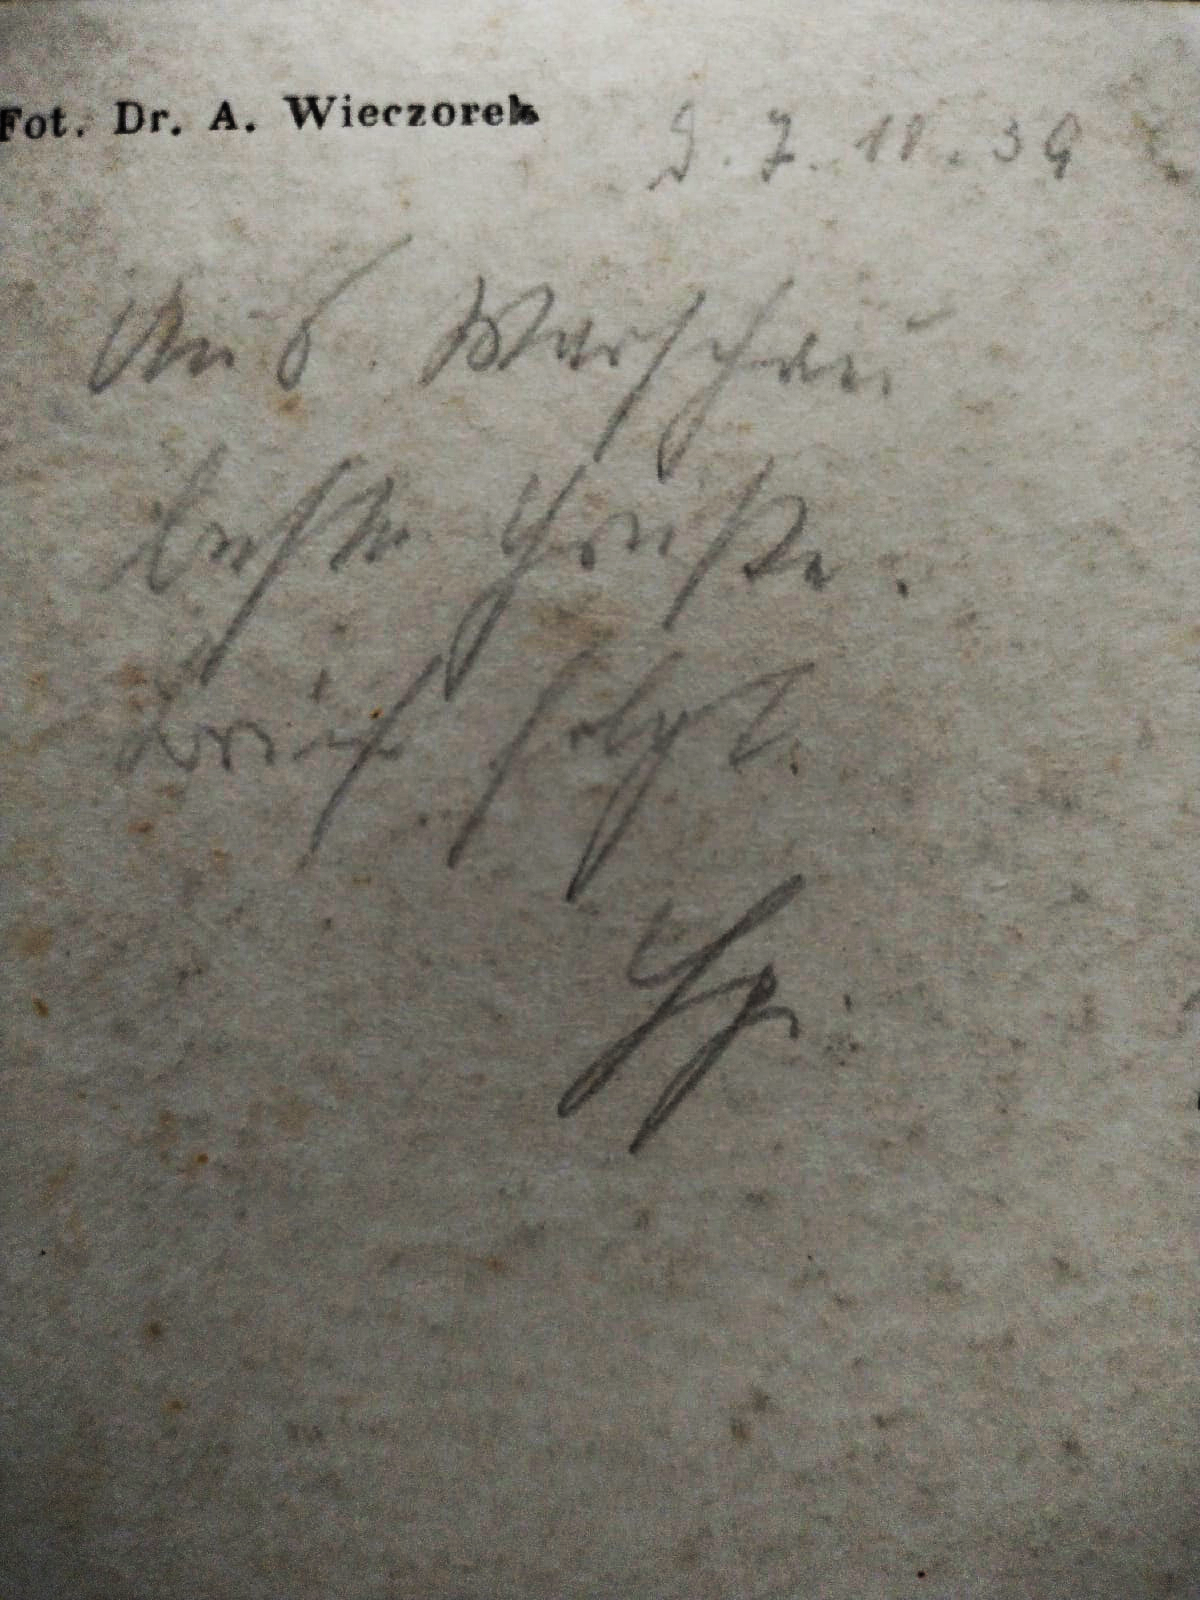 Fot. Dr. A. Wieczorek
d. 7. 10. 39
Aus Warschau
beste Grüße.
Brief folgt.